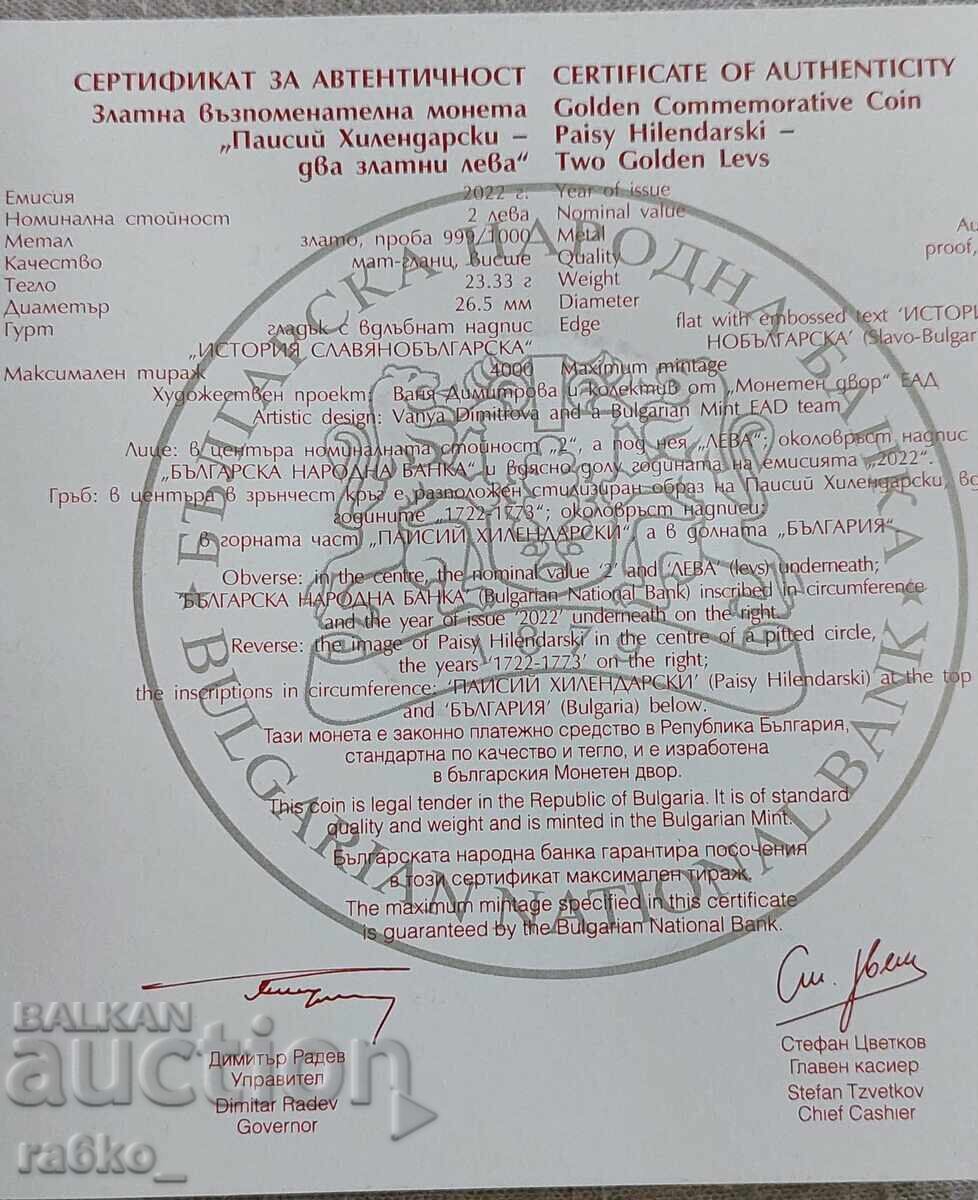 СЕРТИФИКАТ ЗА АВТЕНТИЧНОСТ
Златна възпоменателна монета
„Паисий Хилендарски –
два златни лева“
CERTIFICATE OF AUTHENTICITY
Golden Commemorative Coin
Paisy Hilendarski –
Two Golden Levs
Емисия 2022 г.
Номинална стойност 2 лева
Метал злато, проба 999/1000
Качество мат-гланц, висше
Тегло 23.33 г
Диаметър 26.5 мм
Гурт гладък с вдлъбнат надпис
„ИСТОРИЯ СЛАВЯНОБЪЛГАРСКА“
Максимален тираж 4000
Year of issue
Nominal value
Metal Au
Quality proof,
Weight
Diameter
Edge flat with embossed text ‘ИСТОРИ
НОБЪЛГАРСКА’ (Slavo-Bulgar
Maximum mintage
Художествен проект: Ваня Димитрова и колектив от „Монетен двор“ ЕАД
Artistic design: Vanya Dimitrova and a Bulgarian Mint EAD team
Лице: в центъра номиналната стойност „2“, а под нея „ЛЕВА“; околовръст надпис
„БЪЛГАРСКА НАРОДНА БАНКА“ и вдясно долу годината на емисията „2022“.
Гръб: в центъра в зрънчест кръг е разположен стилизиран образ на Паисий Хилендарски, вд
годините „1722-1773“; околовръст надписи:
в горната част „ПАИСИЙ ХИЛЕНДАРСКИ“, а в долната „БЪЛГАРИЯ“
Obverse: in the centre, the nominal value ‘2’ and ‘ЛЕВА’ (levs) underneath;
‘БЪЛГАРСКА НАРОДНА БАНКА’ (Bulgarian National Bank) inscribed in circumference
and the year of issue ‘2022’ underneath on the right.
Reverse: the image of Paisy Hilendarski in the centre of a pitted circle,
the years ‘1722-1773’ on the right;
the inscriptions in circumference: ‘ПАИСИЙ ХИЛЕНДАРСКИ’ (Paisy Hilendarski) at the top
and ‘БЪЛГАРИЯ’ (Bulgaria) below.
Тази монета е законно платежно средство в Република България,
стандартна по качество и тегло, и е изработена
в българския Монетен двор.
This coin is legal tender in the Republic of Bulgaria. It is of standard
quality and weight and is minted in the Bulgarian Mint.
Българската народна банка гарантира посочения
в този сертификат максимален тираж.
The maximum mintage specified in this certificate
is guaranteed by the Bulgarian National Bank.
БЪЛГАРСКА НАРОДНА БАНКА
BULGARIAN NATIONAL BANK
1879
Димитър Радев
Управител
Dimitar Radev
Governor
Стефан Цветков
Главен касиер
Stefan Tzvetkov
Chief Cashier
BALKAN
auction
ra6ko_